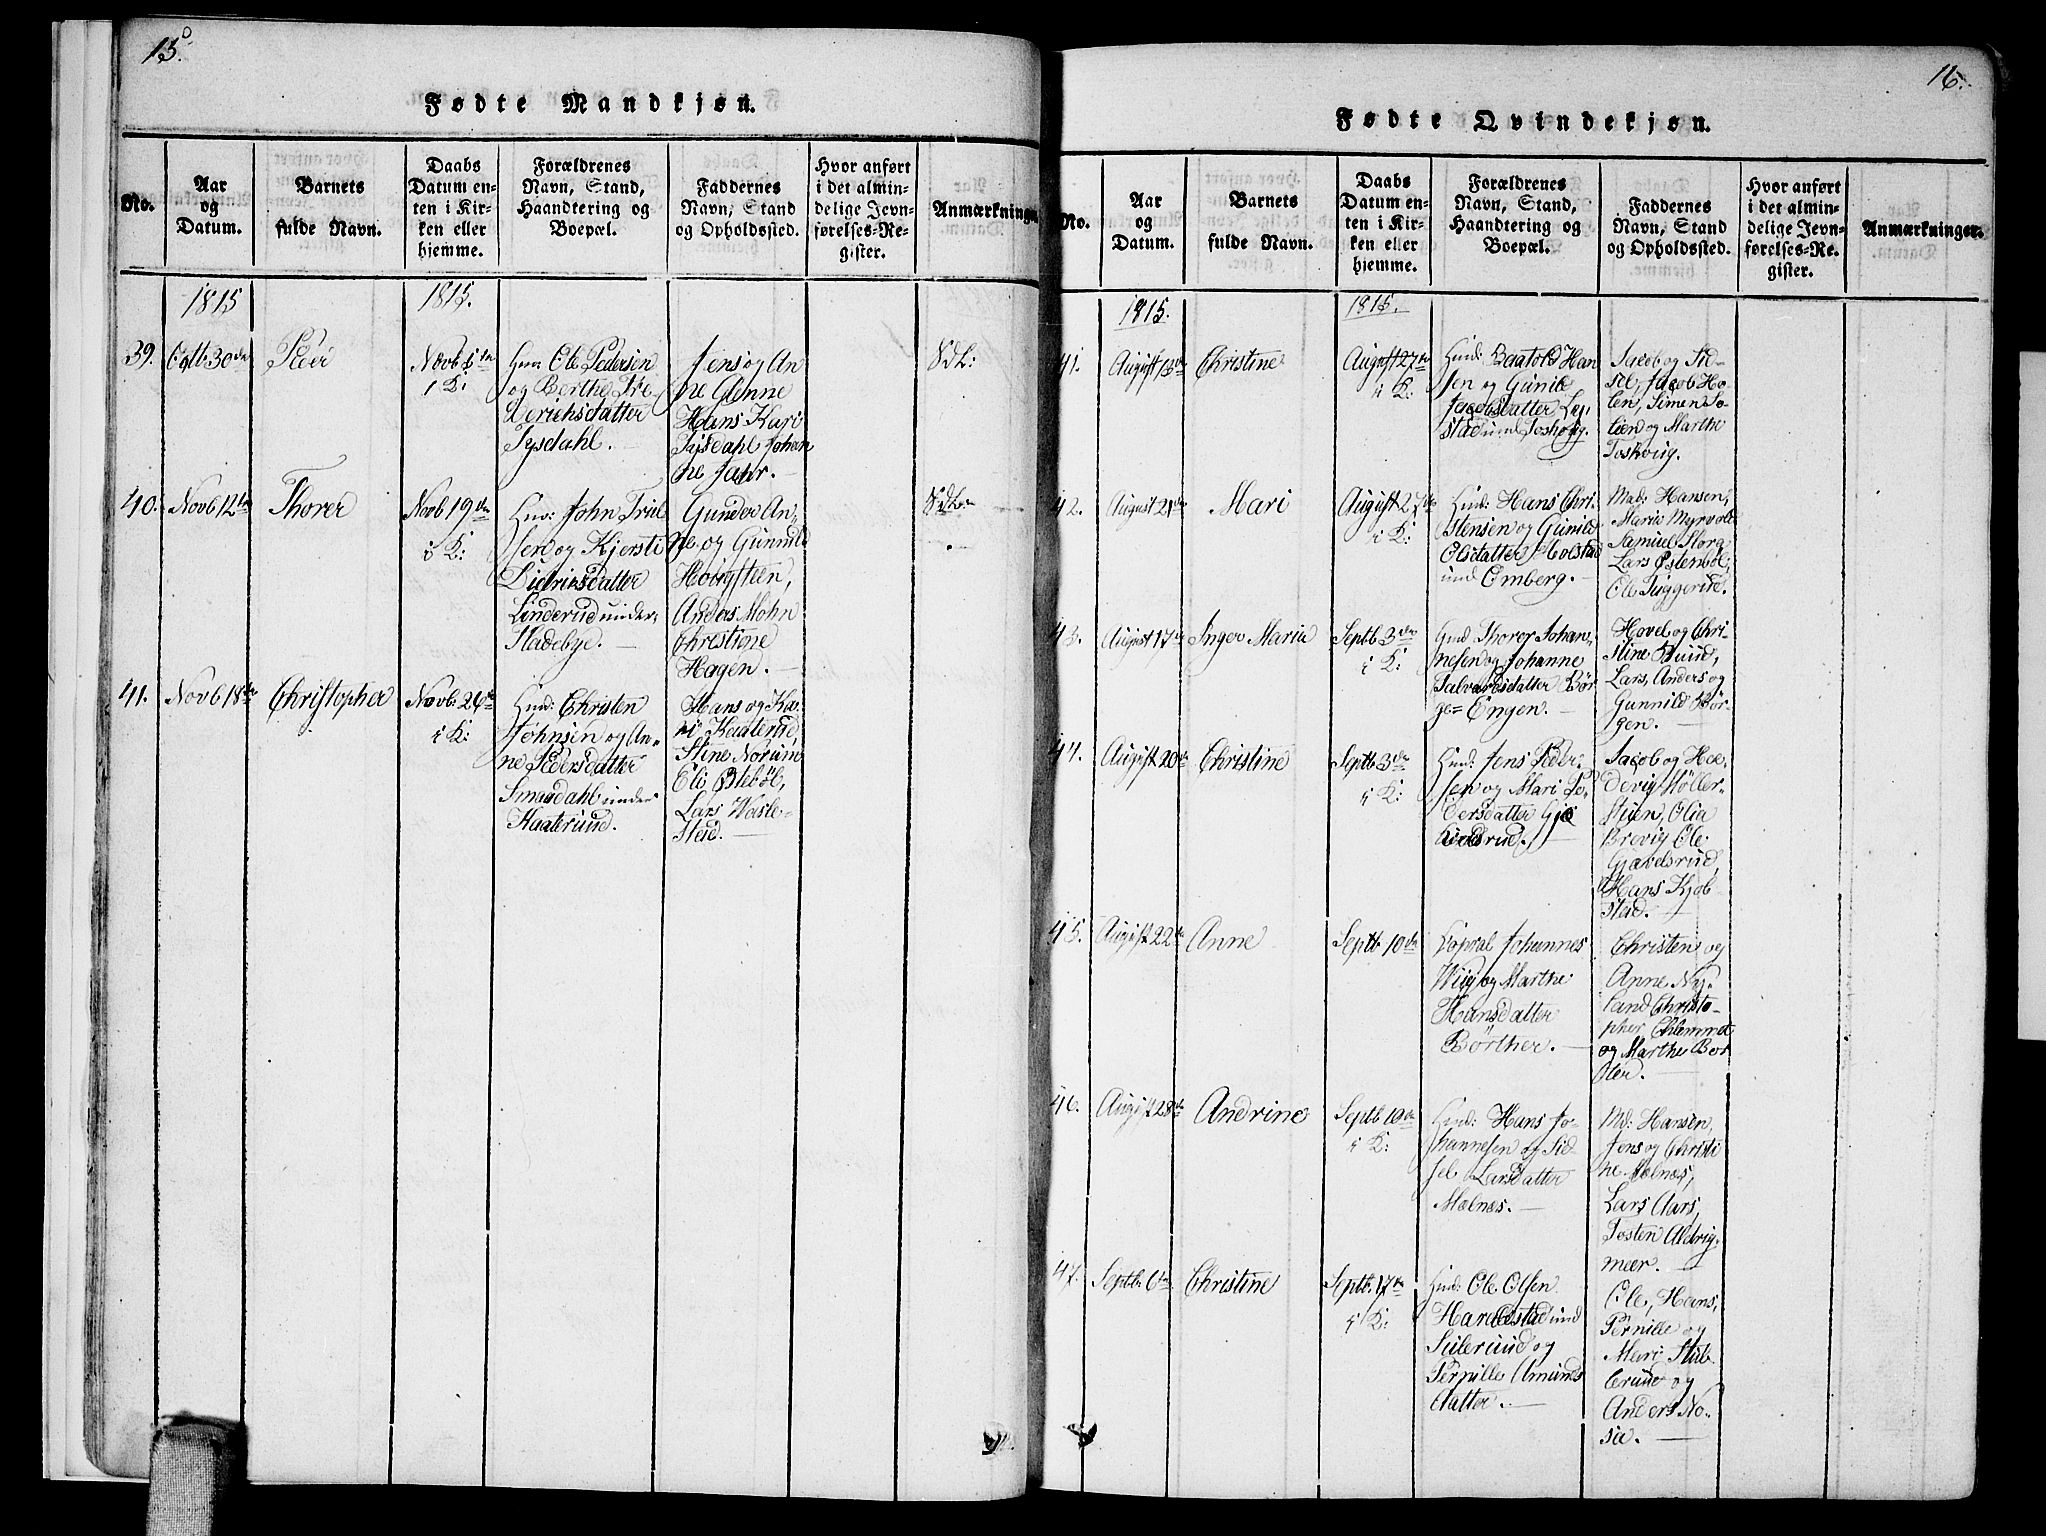 15.
Fødte Mandkjøn.
No.
Aar
og
Datum.
Barnets
fulde Navn.
Daabs
Datum en-
ten i Kir-
ken eller
hjemme.
Forældrenes
Navn, Stand,
Haandtering og
Boepæl.
Faddernes
Navn, Stand
og Opholdssted.
Hvor anført
i det almin-
delige Jevn-
førelses-Re-
gister.
Anmærkninger
1815
1815.
39.
Octb: 30de
Peer
Novb 5te
i K:
Huu: Ole Pedersen
og Berthe Fre-
derichsdatter
Tysdahl.
Jens og An-
ne Glenne
Hans Kari
Tysdahl Johan
ne Fahr.
40.
Novb 12te
Thorer
Novb 19de
i K:
Huu: John Truel
sen og Kjersti
Didriksdatter
Linderud under
Stadebye.
Gunder An-
ne og Gunnild
Hoingsteen,
Anders Mohn
Christine
Hagen.
41.
Novb 18de
Christopher
Novb: 26de
i K:
Huu: Christen
Johnsen og An-
ne Pedersdatter
Smerdahl under
Haaterud.
Hans og Ka-
ri Kaaterud,
Stine Norum
Eli Østebøl,
Lars Wesle-
stad.
16.
Fødte Qvindekjøn.
No.
Aar
og
Datum.
Barnets
fulde Navn.
Daabs
Datum en-
ten i Kir-
ken eller
hjemme.
Forældrenes
Navn, Stand,
Haandtering og
Boepæl.
Faddernes
Navn, Stand
og Opholdssted.
Hvor anført
i det almin-
delige Jevn-
førelses-Re-
gister.
Anmærkninger.
1815.
1815.
41.
August 13de
Christine
August 27de
i K:
Huu: Baatold Han
sen og Gunild
Jacobsdatter
stad und Toskvig.
Jacob og Sid-
sel, Jacob Ho-
len, Simen So-
lien og Marthe
Toskvig.
42.
August 21de
Mari
August 27de
i K:
Huu: Hans Chri-
stensen og Gunild
Olsdatter Holstad
und Omberg.
Mad: Hansen,
Maria Myrvold
Samuel Korg
Lars Østenbøl,
Ole Tuggerud.
43.
August 17de
Inger Maria
Septb 3de
i K:
Huu Thorer Johan-
nesen og Johanne
Salvardsdatter Bør
ge= Engen.
Hovel og Chri-
stine Ruud,
Lars, Anders og
Gunnild Bør-
gen.
44.
August 20de
Christine
Septb 3de
i K:
Huu: Jens Peder-
sen og Mari Pe-
dersdatter Gjæ
velsrud.
Jacob og He-
devig Møller-
stuen, Olia
Brevig Ole
Gjævelsrud,
Hans Kjøb
stad.
45.
August 22de
Anne
Septb 10de
Copral Johannes
Wiig og Marthe
Hansdatter
Børther.
Christen og
Anne Ny-
land Christo-
pher Klemmet
og Marthe Bør
ther.
46.
August 28de
Andrine
Septb 10de
i K:
Huu: Hans Jo-
hannesen og Sid-
sel Larsdatter
Melnes.
Md: Hansen,
Jens og Christi
ne Melnes,
Lars Aars,
Tosten Aldrig-
meer.
47.
Septb: 6te
Christine
Septb: 17de
i K:
Huu: Ole Olsen
Harelstad und
Sulerud og
Pernille Amunds
datter.
Ole, Hans,
Pernille og
Mari Sul-
lerud og
Anders No-
sa.